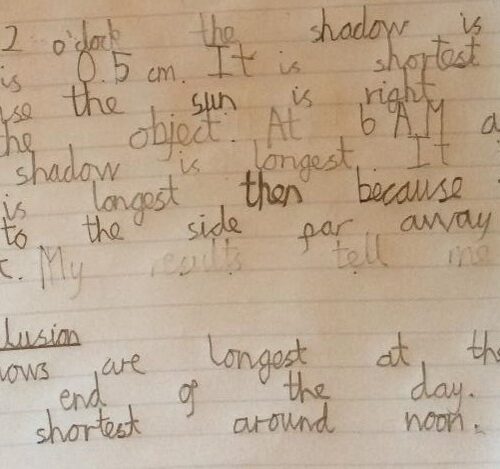 2 o'clock the shadow is
is 0.5 cm. It is shortest
use the sun is right
he object. At 6 AM a
shadow is longest. It
is longest then because
to the side far away
t. My results tell me
lusion
ows are longest at the
end of the day.
shortest around noon.